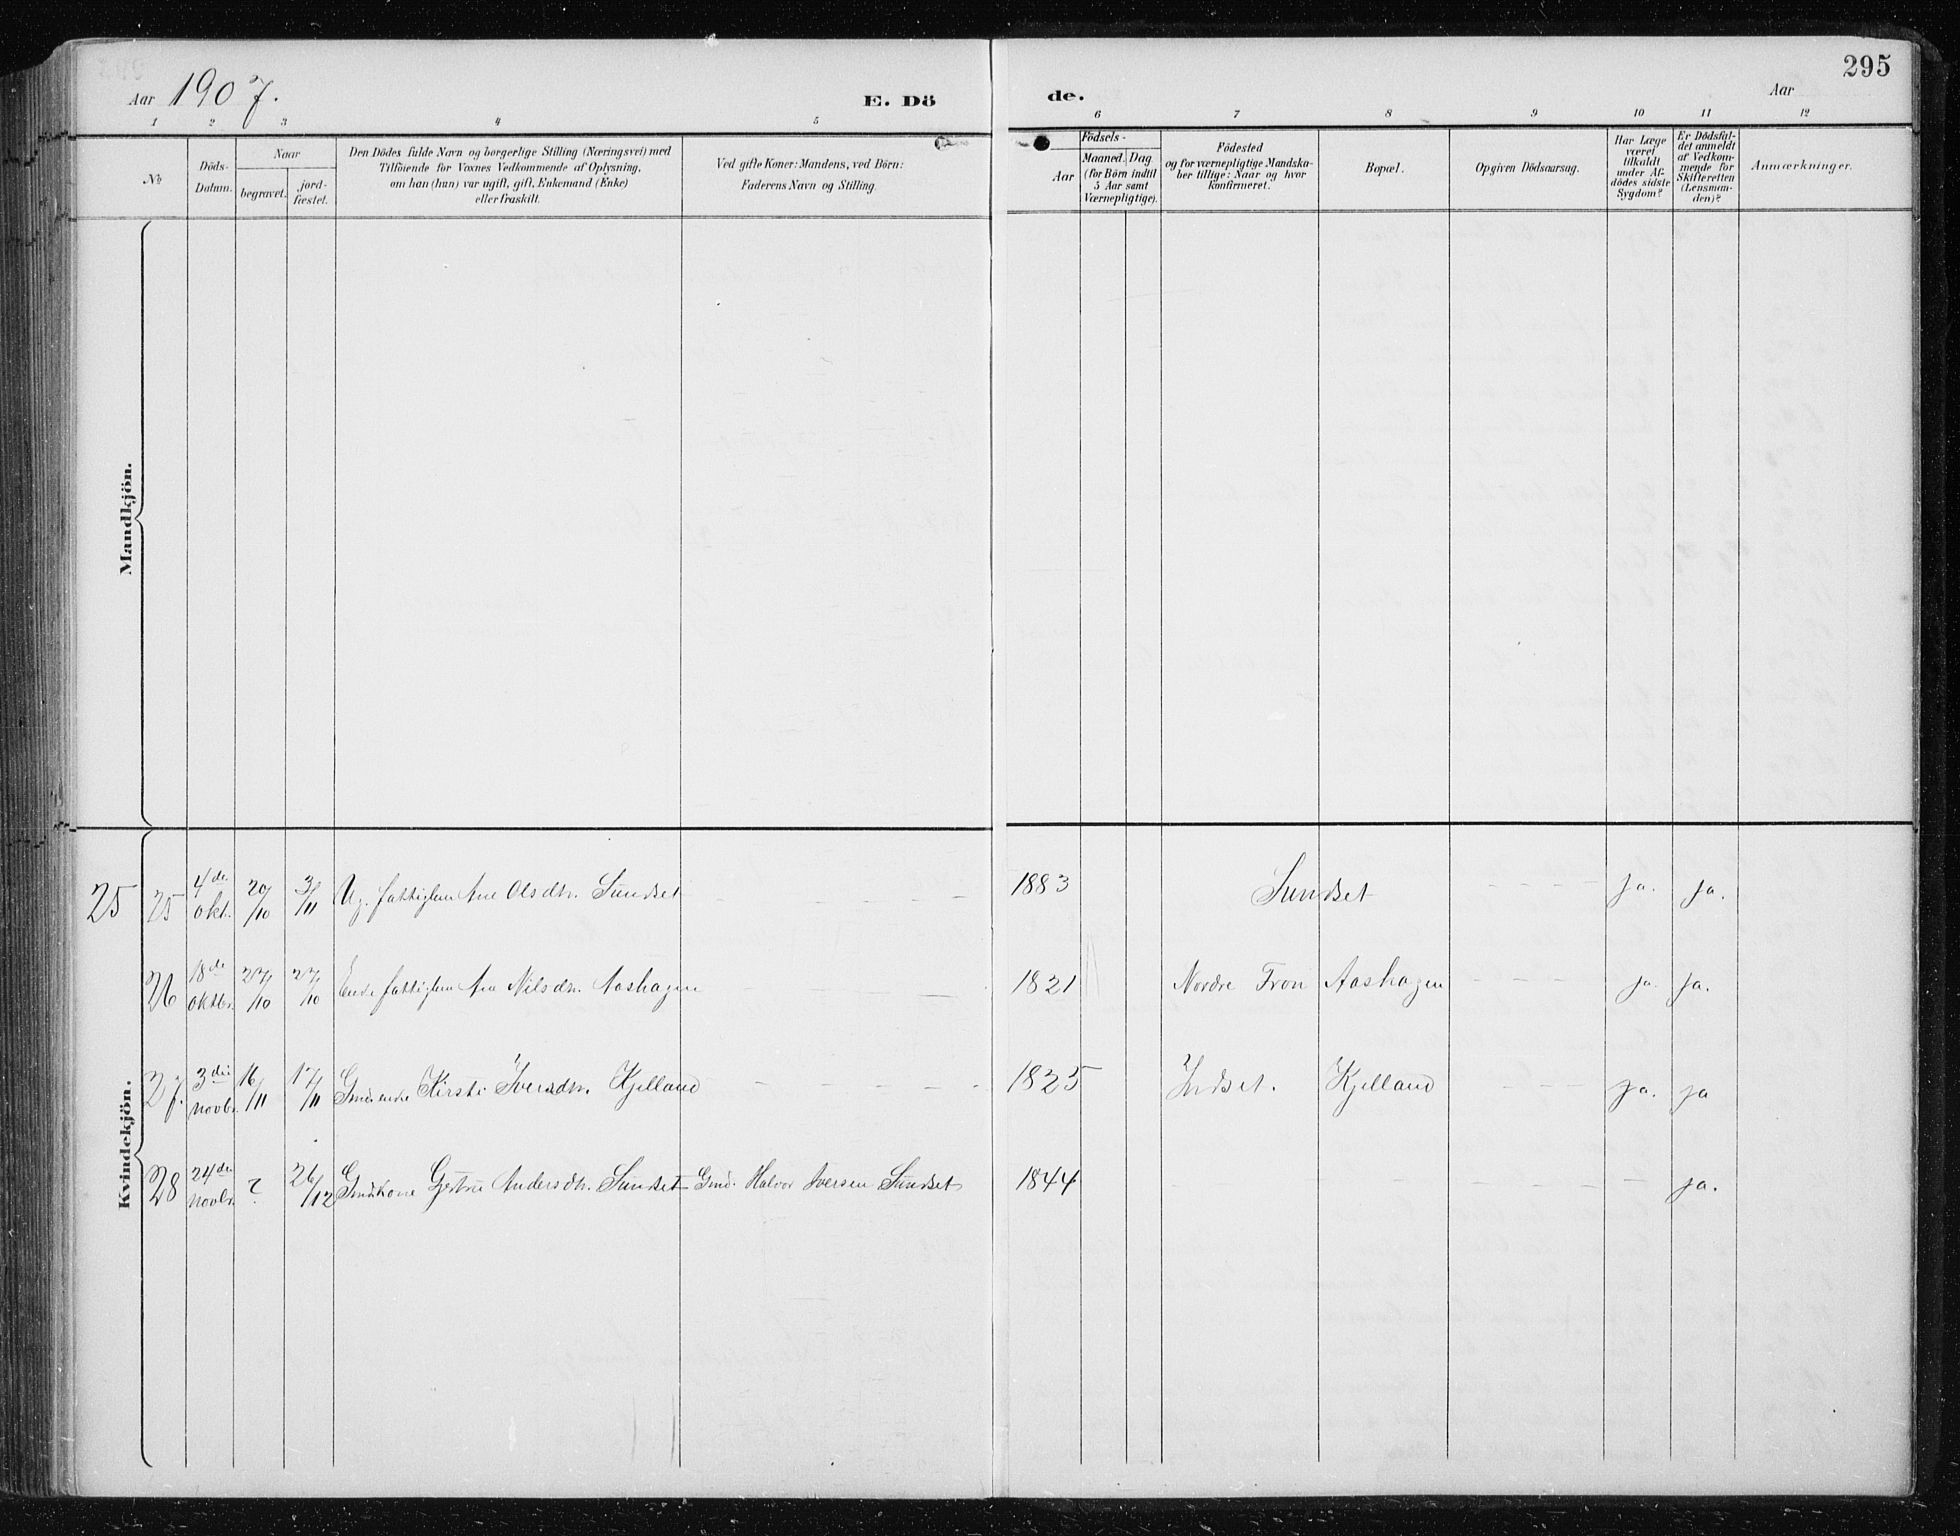 295
Aar 1907.
E. Dö
de.
Aar
1 2 3 4 5 6 7 8 9 10 11 12
№
Döds-
Datum.
Naar
begravet.
jord-
fæstet.
Den Dödes fulde Navn og borgerlige Stilling (Næringsvei) med
Tilföiende for Voxnes Vedkommende af Oplysning,
om han (hun) var ugift, gift, Enkemand (Enke)
eller fraskilt.
Ved gifte Koner: Mandens, ved Börn:
Faderens Navn og Stilling.
Födsels-
Aar
Maaned. Dag
(for Börn indtil
5 Aar samt
Værnepligtige).
Födested
og for værnepligtige Mandska-
ber tillige: Naar og hvor
konfirmeret.
Bopæl.
Opgiven Dödsaarsag.
Har Læge
været
tilkaldt
under Af-
dödes sidste
Sygdom?
Er Dödsfal-
det anmeldt
af Vedkom-
mende for
Skifteretten
(Lensman-
den)?
Anmærkninger.
Mandkjön.
Kvindekjön.
25 25 4de okt. 20/10 3/11 Ug. fattiglem Ane Olsdtr. Sundset - - - - 1883 Sundset - - - - ja. ja.
26 18de oktbr. 27/10 27/10 Enke fattiglem Ane Nilsdtr. Aashagen - - - 1821 Nordre Fron Aashagen - - - - ja. ja.
27. 3die novbr. 16/11 17/11 Gmdenke Kirsti Iversdtr. Kjelland - - - - 1825 Indset. Kjelland - - - - ja. ja
28 24de novbr. ? 26/12 Gmdkone Gjertrud Andersdtr. Sundset Gmd. Halvor Iversen Sundset 1844 - - - - - - - ja.